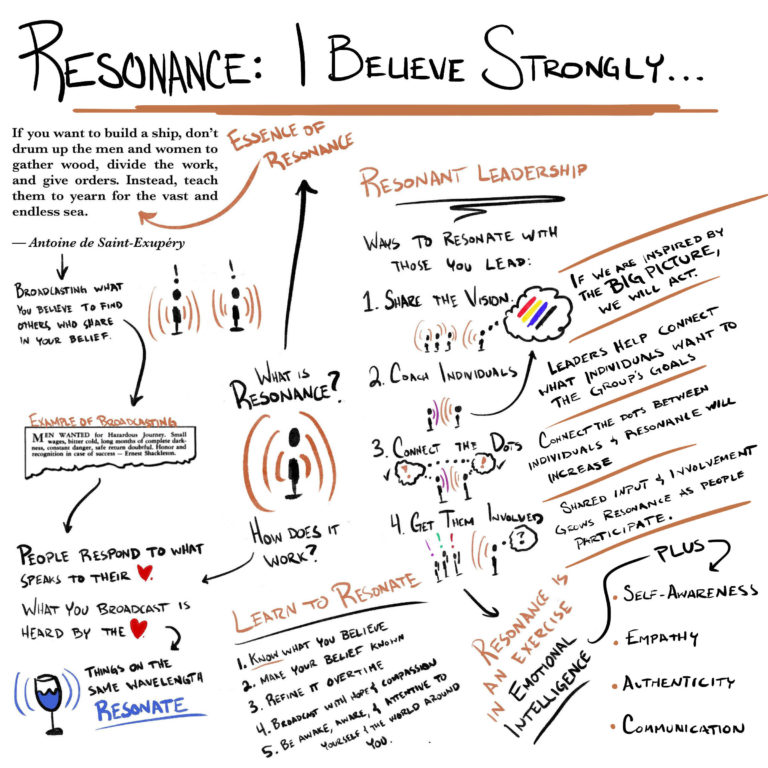 RESONANCE: I BELIEVE STRONGLY...
If you want to build a ship, don't
drum up the men and women to
gather wood, divide the work,
and give orders. Instead, teach
them to yearn for the vast and
endless sea.
— Antoine de Saint-Exupéry
ESSENCE OF
RESONANCE
BROADCASTING WHAT
YOU BELIEVE TO FIND
OTHERS WHO SHARE
IN YOUR BELIEF.
EXAMPLE OF BROADCASTING
MEN WANTED for Hazardous Journey. Small
wages, bitter cold, long months of complete dark-
ness, constant danger, safe return doubtful. Honor and
recognition in case of success — Ernest Shackleton.
PEOPLE RESPOND TO WHAT
SPEAKS TO THEIR ❤.
WHAT YOU BROADCAST IS
HEARD BY THE ❤.
THINGS ON THE
SAME WAVELENGTH
RESONATE
WHAT IS
RESONANCE?
HOW DOES IT
WORK?
LEARN TO RESONATE
1. KNOW WHAT YOU BELIEVE
2. MAKE YOUR BELIEF KNOWN
3. REFINE IT OVERTIME
4. BROADCAST WITH HOPE & COMPASSION
5. BE AWAKE, AWARE, & ATTENTIVE TO
YOURSELF & THE WORLD AROUND
YOU.
RESONANT LEADERSHIP
WAYS TO RESONATE WITH
THOSE YOU LEAD:
1. SHARE THE VISION
2. COACH INDIVIDUALS
3. CONNECT THE DOTS
! !
4. GET THEM INVOLVED
! ! ! ?
IF WE ARE INSPIRED BY
THE BIG PICTURE,
WE WILL ACT.
LEADERS HELP CONNECT
WHAT INDIVIDUALS WANT TO
THE GROUP'S GOALS
CONNECT THE DOTS BETWEEN
INDIVIDUALS & RESONANCE WILL
INCREASE
SHARED INPUT & INVOLVEMENT
GROWS RESONANCE AS PEOPLE
PARTICIPATE.
RESONANCE IS
AN EXERCISE
IN EMOTIONAL
INTELLIGENCE
PLUS
• SELF-AWARENESS
• EMPATHY
• AUTHENTICITY
• COMMUNICATION